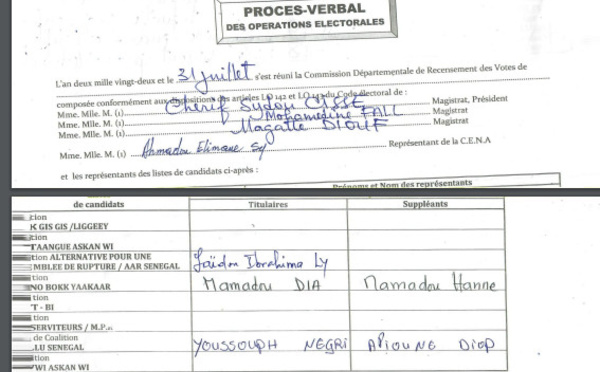 PROCES-VERBAL
DES OPERATIONS ELECTORALES
L'an deux mille vingt-deux et le 31 juillet s'est réuni la Commission Départementale de Recensement des Votes de
composée conformément aux dispositions des articles du Code électoral de :
Mme. Mlle. M. (1) Chérif Sydou CISSE Magistrat, Président
Mme. Mlle. M. (1) Mohamedine FALL Magistrat
Mme. Mlle. M. (1) Magatte DIOUF Magistrat
Mme. Mlle. M. (1) Ahmadou Elimane Sy Représentant de la C.E.N.A
et les représentants des listes de candidats ci-après :
Prénoms et Nom des représentants
de candidats Titulaires Suppléants
tion
K GIS GIS /LIGGEEY
tion
TAANGUE ASKAN WI
tion ALTERNATIVE POUR UNE
MBLEE DE RUPTURE / AAR SENEGAL Ibrahima Ly
tion
NO BOKK YAAKAAR Mamadou DIA Mamadou Hanne
tion
T - BI
tion
SERVITEURS / M.P.
de Coalition
LU SENEGAL YOUSSOUPH NEGRI ALIOUNE DIOP
tion
WI ASKAN WI